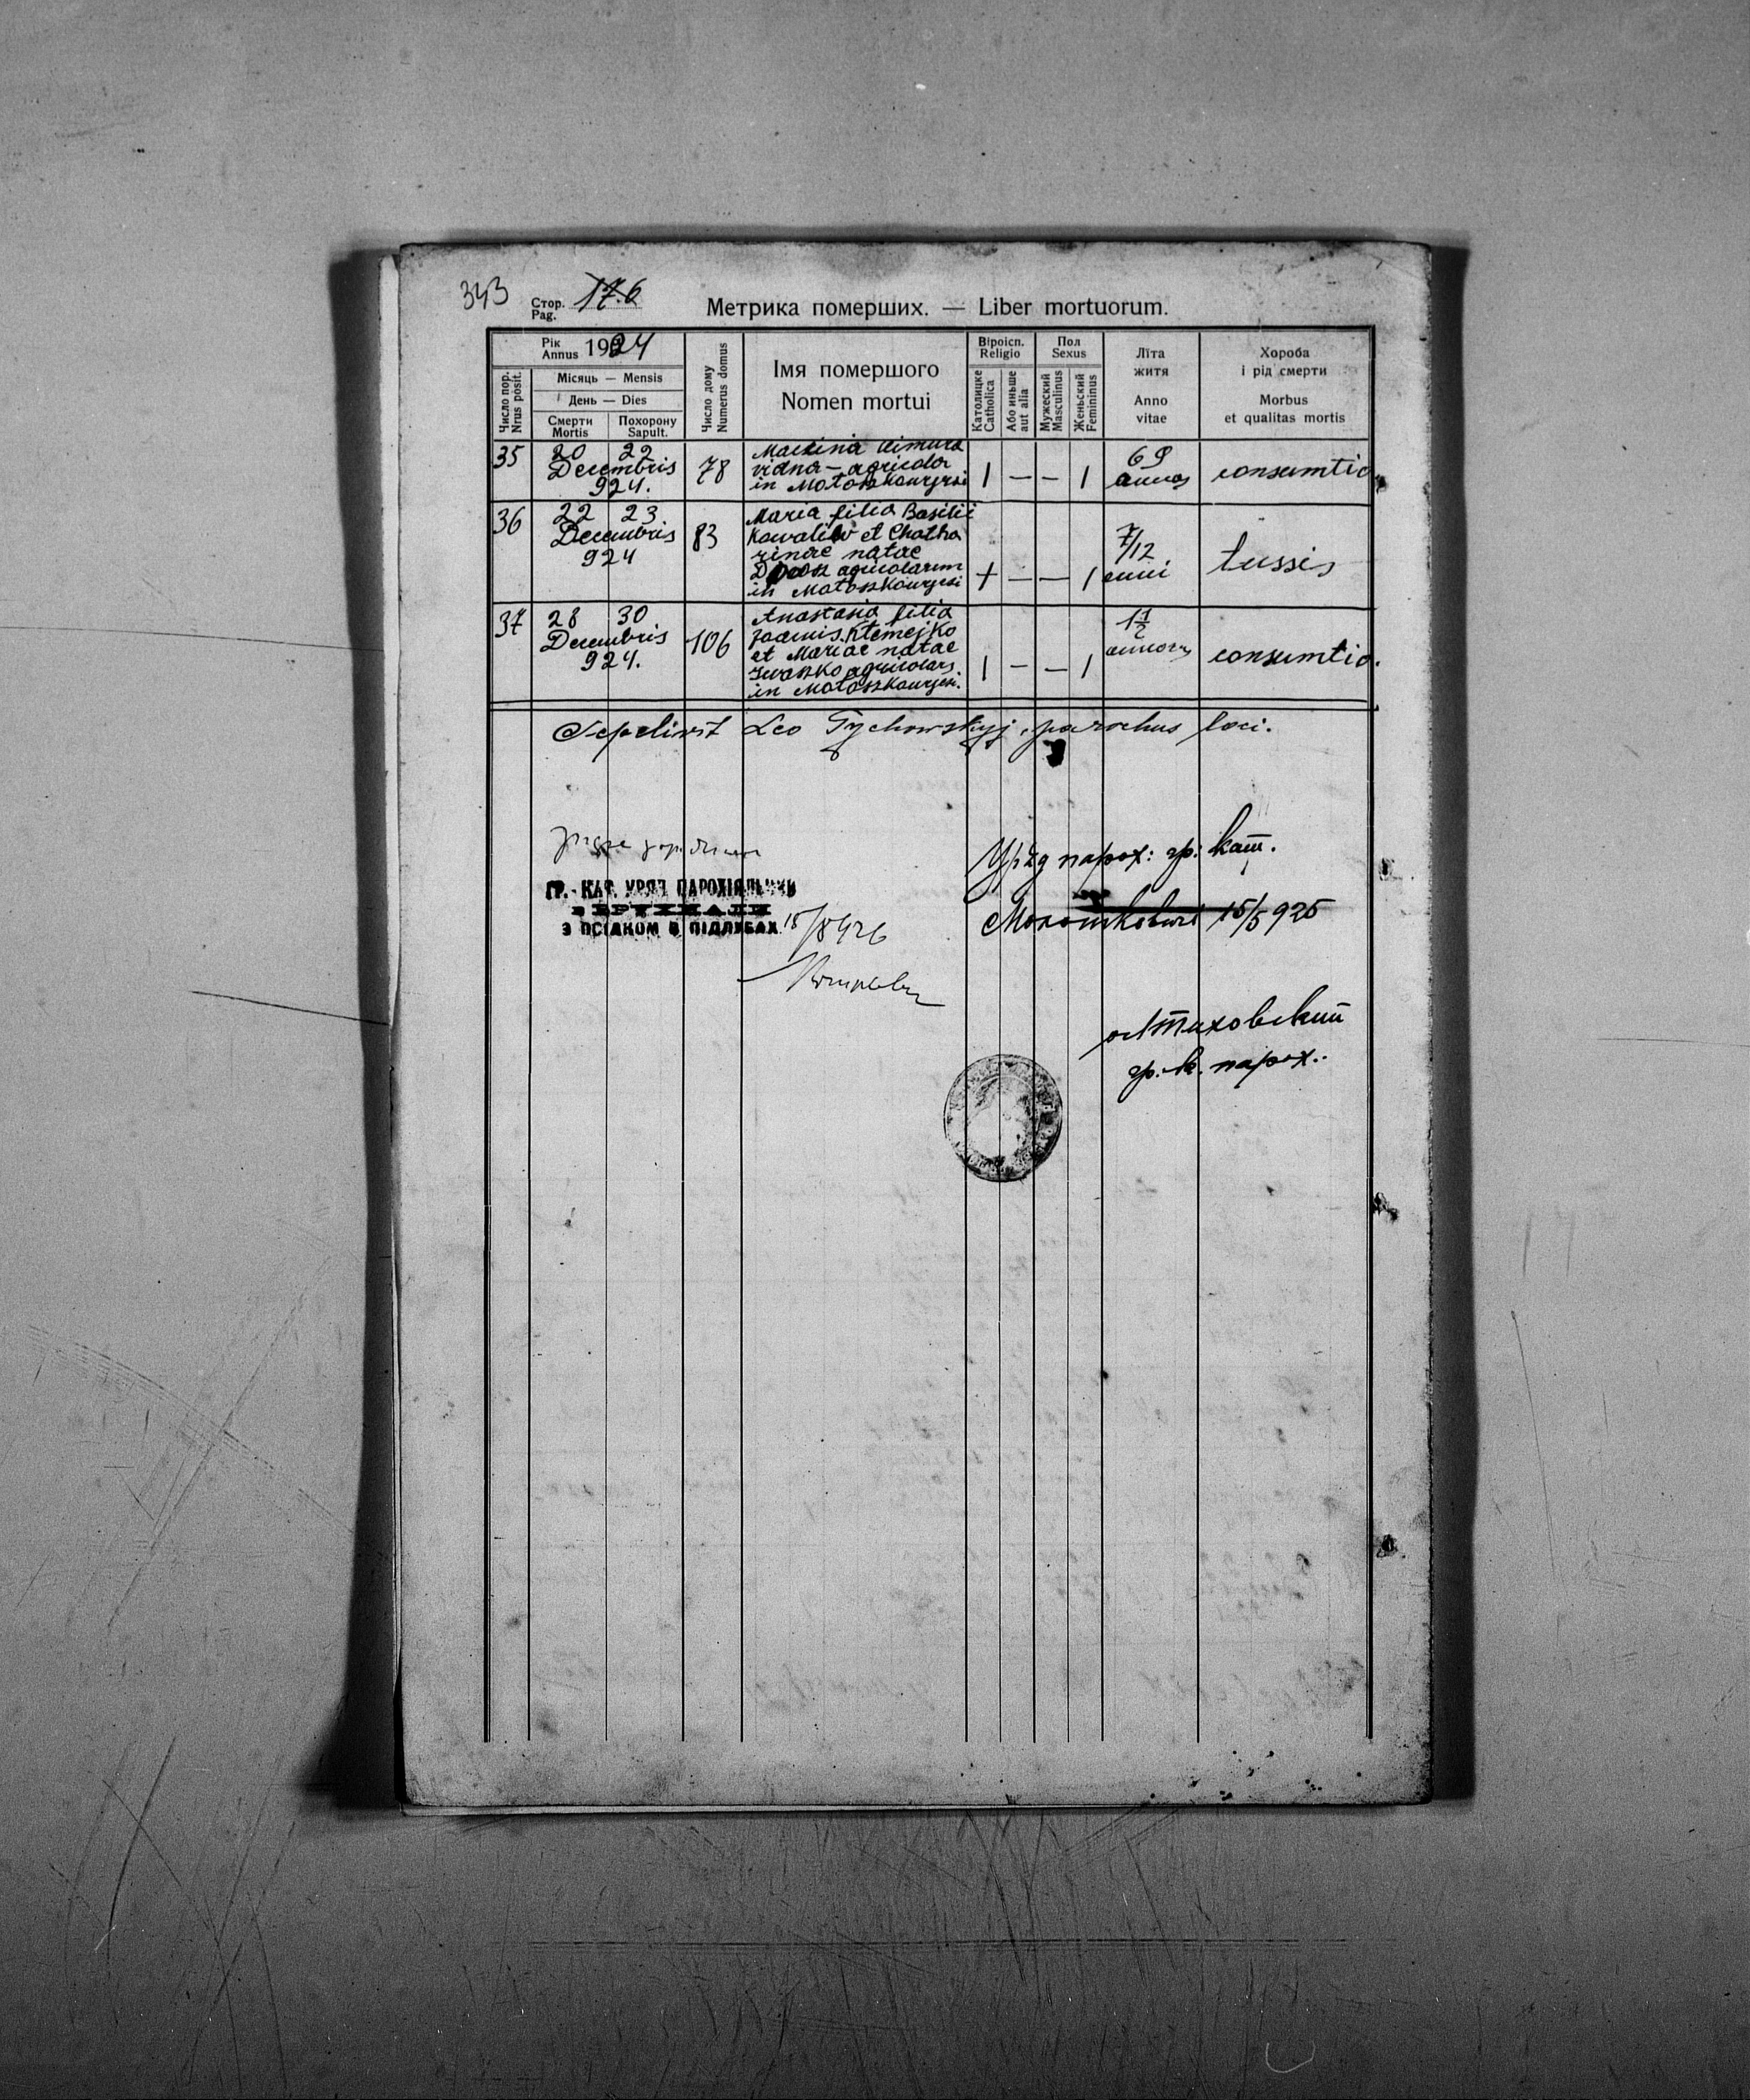 343
Стор. Pag. 176
Метрика померших. — Liber mortuorum.
Рік Annus 1924
Число пор. Nrus posit.
Місяць — Mensis
День — Dies
Смерти Mortis
Похорону Sapult.
Число дому Numerus domus
Імя помершого
Nomen mortui
Віроісп. Religio
Католицке Catholica
Або иньше aut alia
Пол Sexus
Мужеский Masculinus
Женьский Femininus
Літа житя
Anno vitae
Хороба і рід смерти
Morbus et qualitas mortis
35 20 22 Decembris 924. 78
vidna – agricola
in
1 — — 1
69
consumtio
36 22 23 Decembris 924 83
Maria filia Basilii
Kowaliw et Chatha
rinae natae
agricolarum
in
+ — — 1
7/12 anni
tussis
37 28 30 Decembris 924. 106
Anastasia filia
Joannis Klemejko
et Mariae natae
Iwaszko agricolars
in
1 — — 1
1 1/2
consumtio.
Sepelivit Leo Tychowskyj, parochus loci.
ГР.-КАТ. УРЯД ПАРОХІЯЛЬНИЙ
З ОСІДКОМ В ПІДЛУБАХ
18/8 926
Уряд парох: гр: кат.
15/5 925
гр. к. парох.